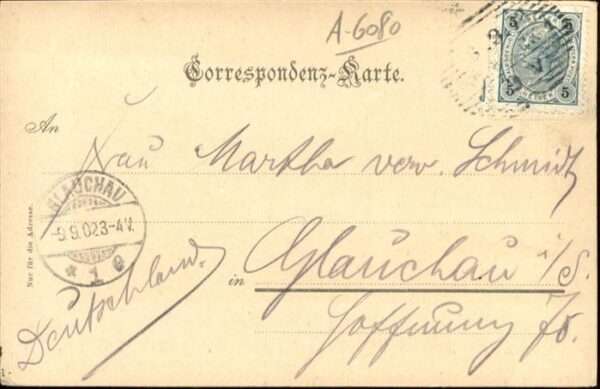 A-6080
5 5
5 5
Correspondenz-Karte.
An
Frau Martha verw. Schmidt
GLAUCHAU
9.9.02.3-4N.
* 1 e
Nur für die Adresse.
in Glauchau i/S.
Deutschland.
Hoffnung 70.